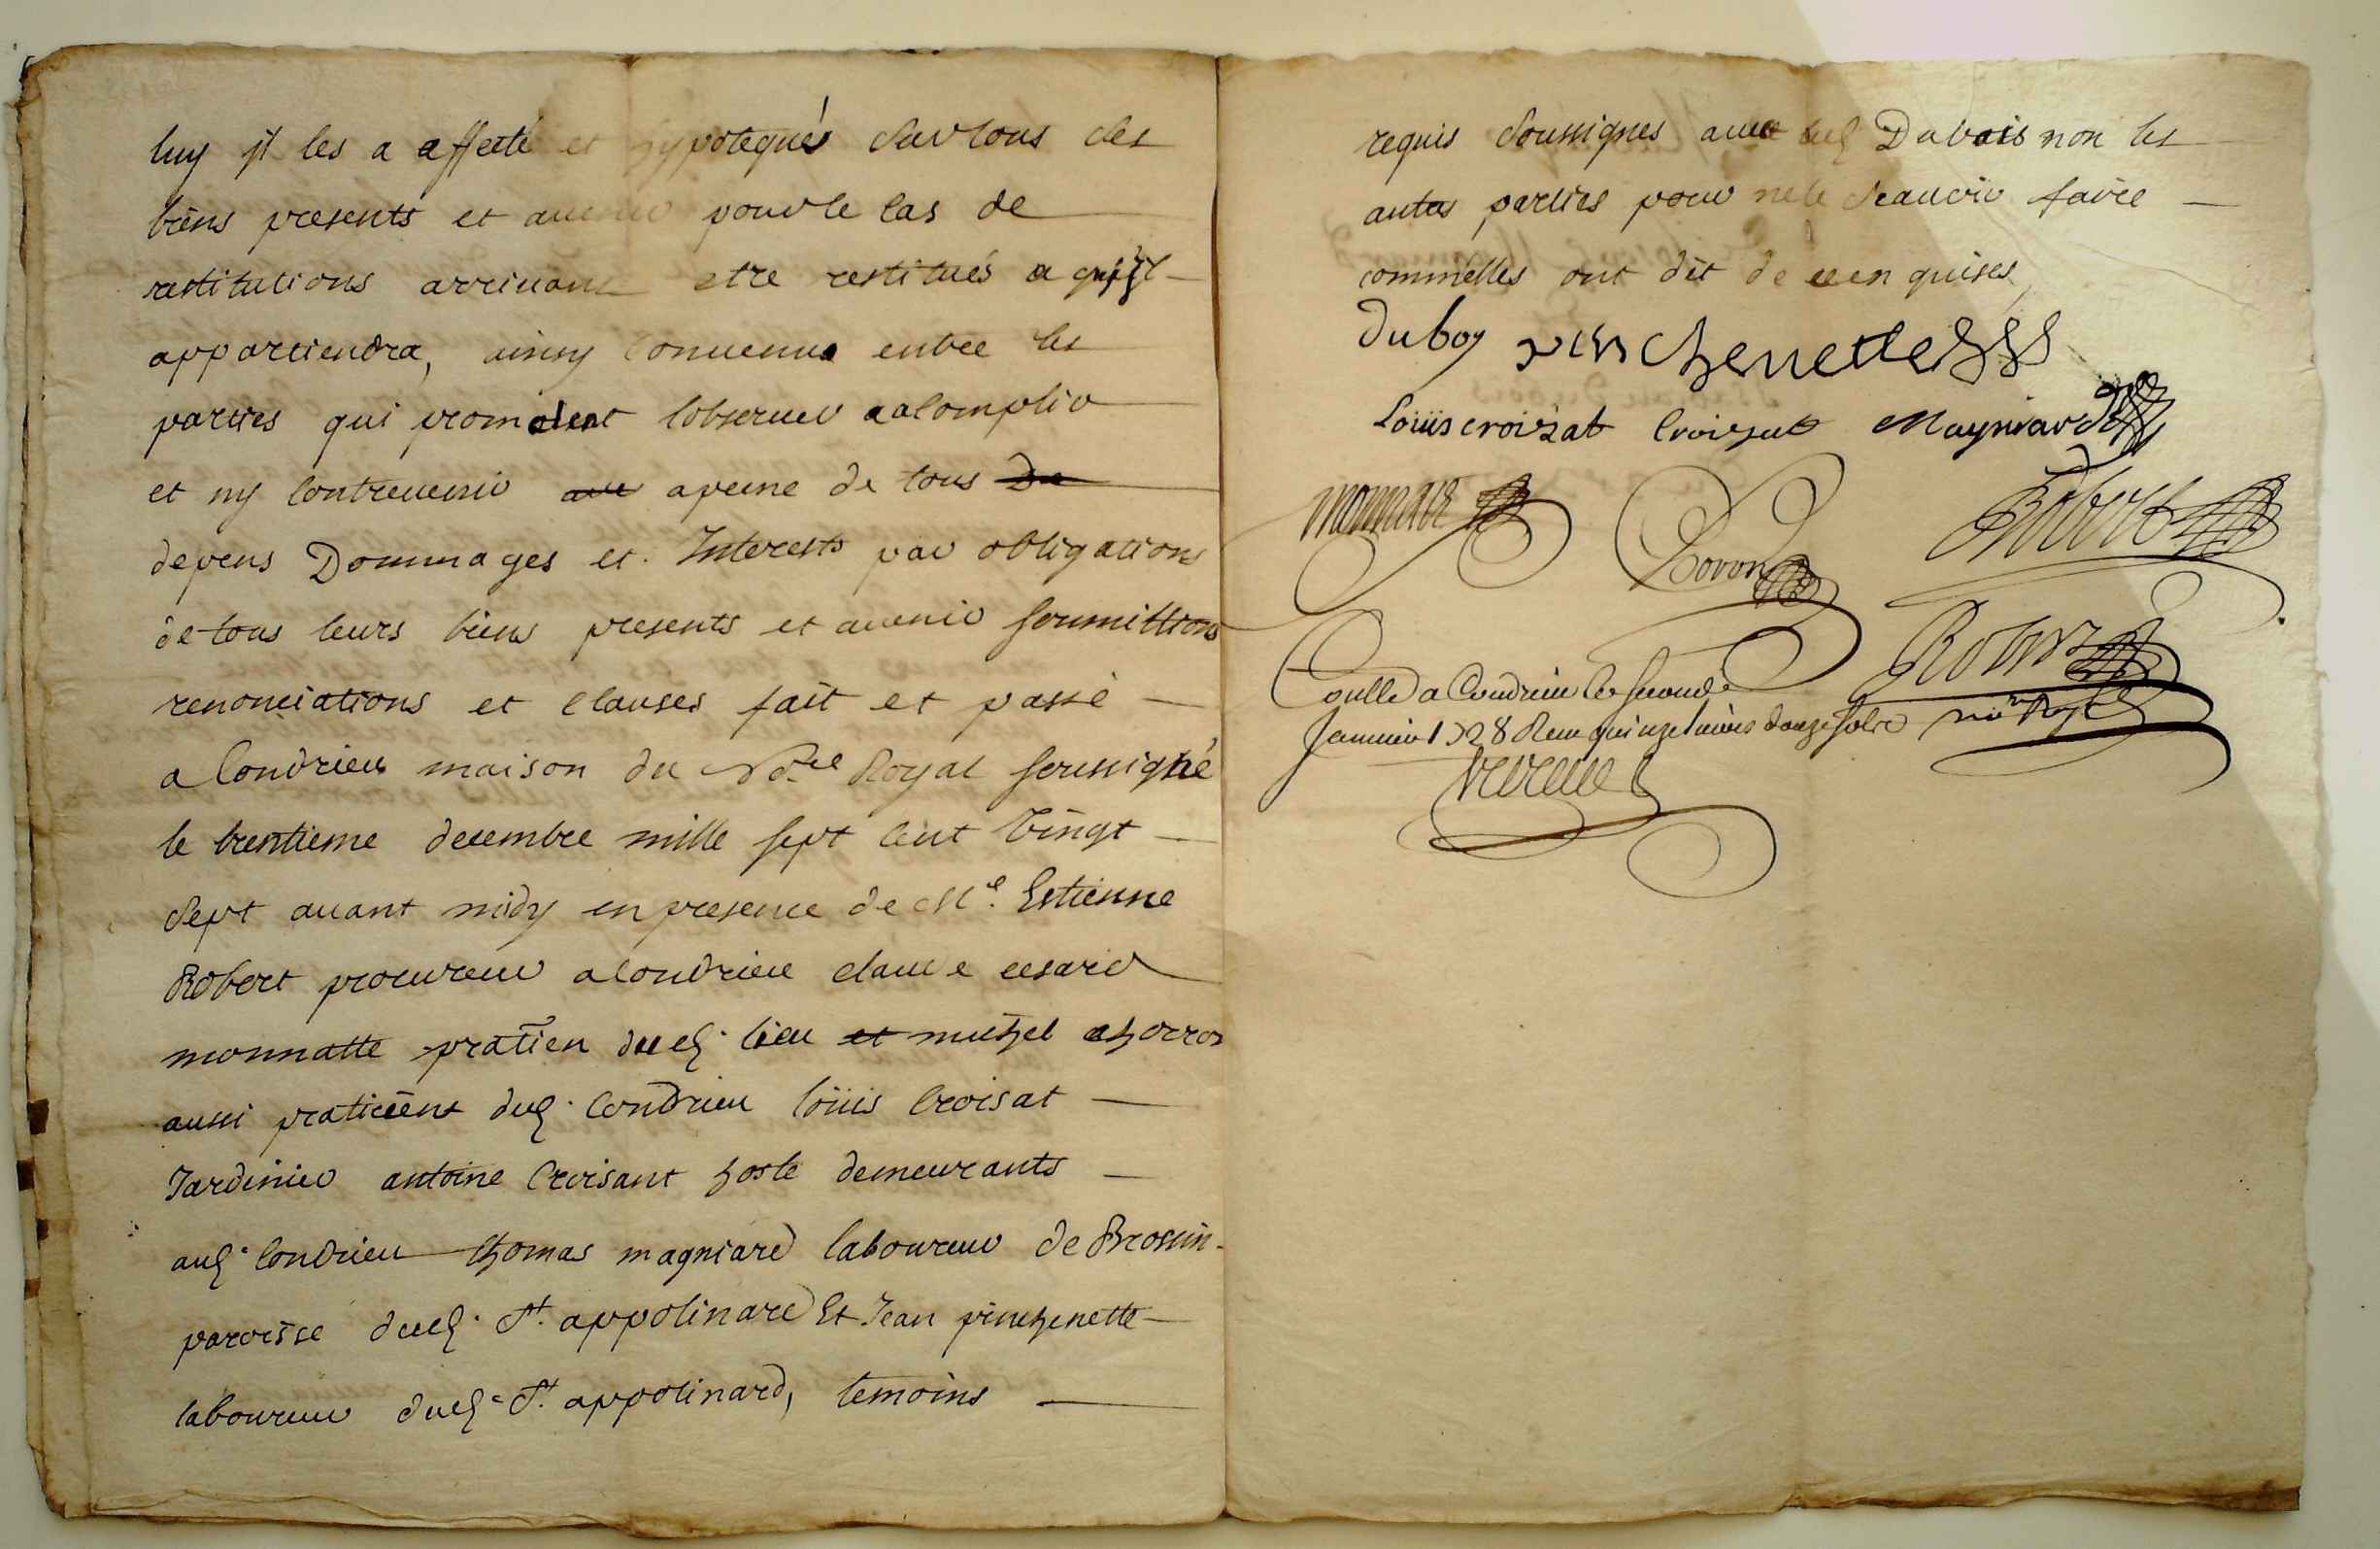 luy jl les a affecté et hypotequés sur tous ses
biens presents et avenir pour le cas de
restitutions arrivant etre restitués a qui jl
appartiendra, ainsy convenus entre les
parties qui promettent lobserver accomplir
et ny contrevenir ave apeine de tous De
depens Dommages et Interests par obligations
de tous leurs biens presents et avenir soumittions
renonciations et clauses fait et passé
a Condrieu maison du No.re Royal soussigné
le trentieme decembre mille sept cent Vingt
sept avant midy en presence de Me. Estienne
Robert procureur a Condrieu claude cesard
monnatte pratiēn dud. lieu et michel chorron
aussi praticiens dud. Condrieu loüis Croisat
Jardinier antoine Croisant hoste demeurants
aud. Condrieu thomas magniard laboureur de Brossin
paroisse dud. St. appolinard Et Jean pinchenette
laboureur dud. St. appolinard, temoins
requis soussignes avec led Dubois non les
autes parties pour ne le scauoir faire
commelles ont dit de ce en quises
duboy pin chenette
Loüis croizat Croizat Maynard
monnate Robert
Robert
Conllé a Condrieu le second
Janvier 1728 Receu quinze livres douze sols no.re Royal